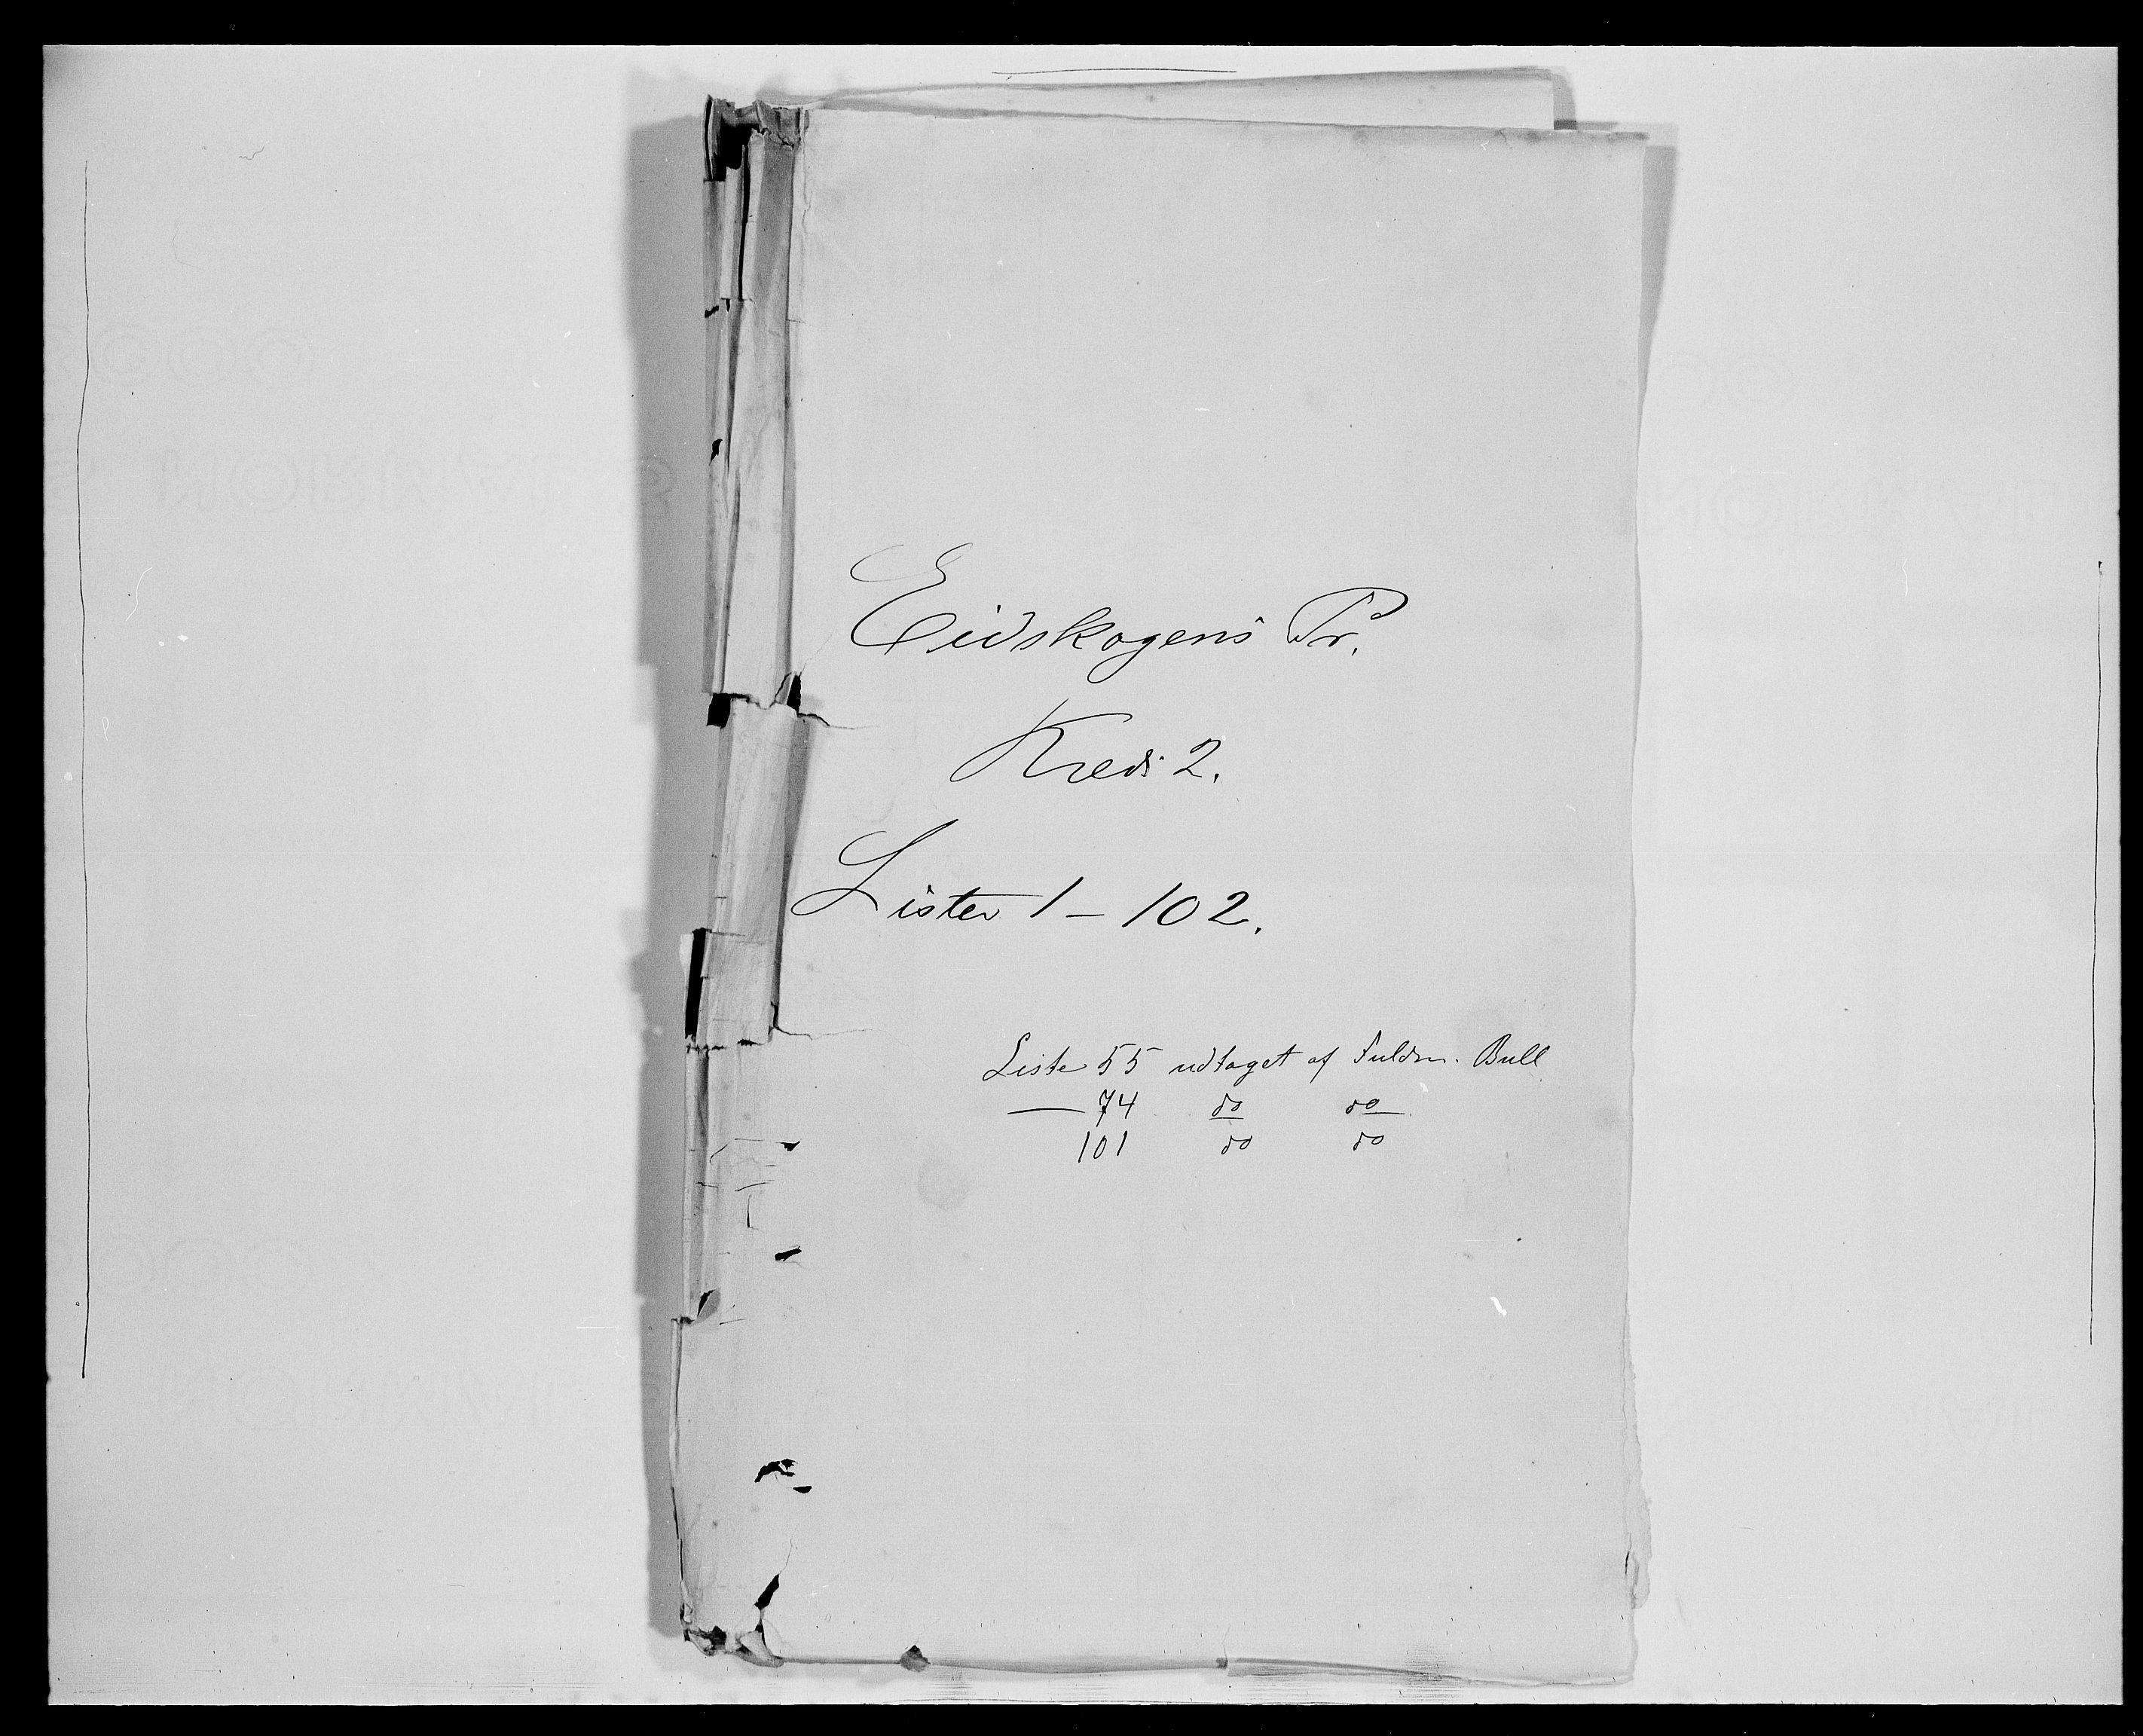 Eidskogens Pr.
Kreds 2.
Lister 1 – 102.
Liste 55 udtaget af Fuldm. Bull
— 74 do do
101 do do